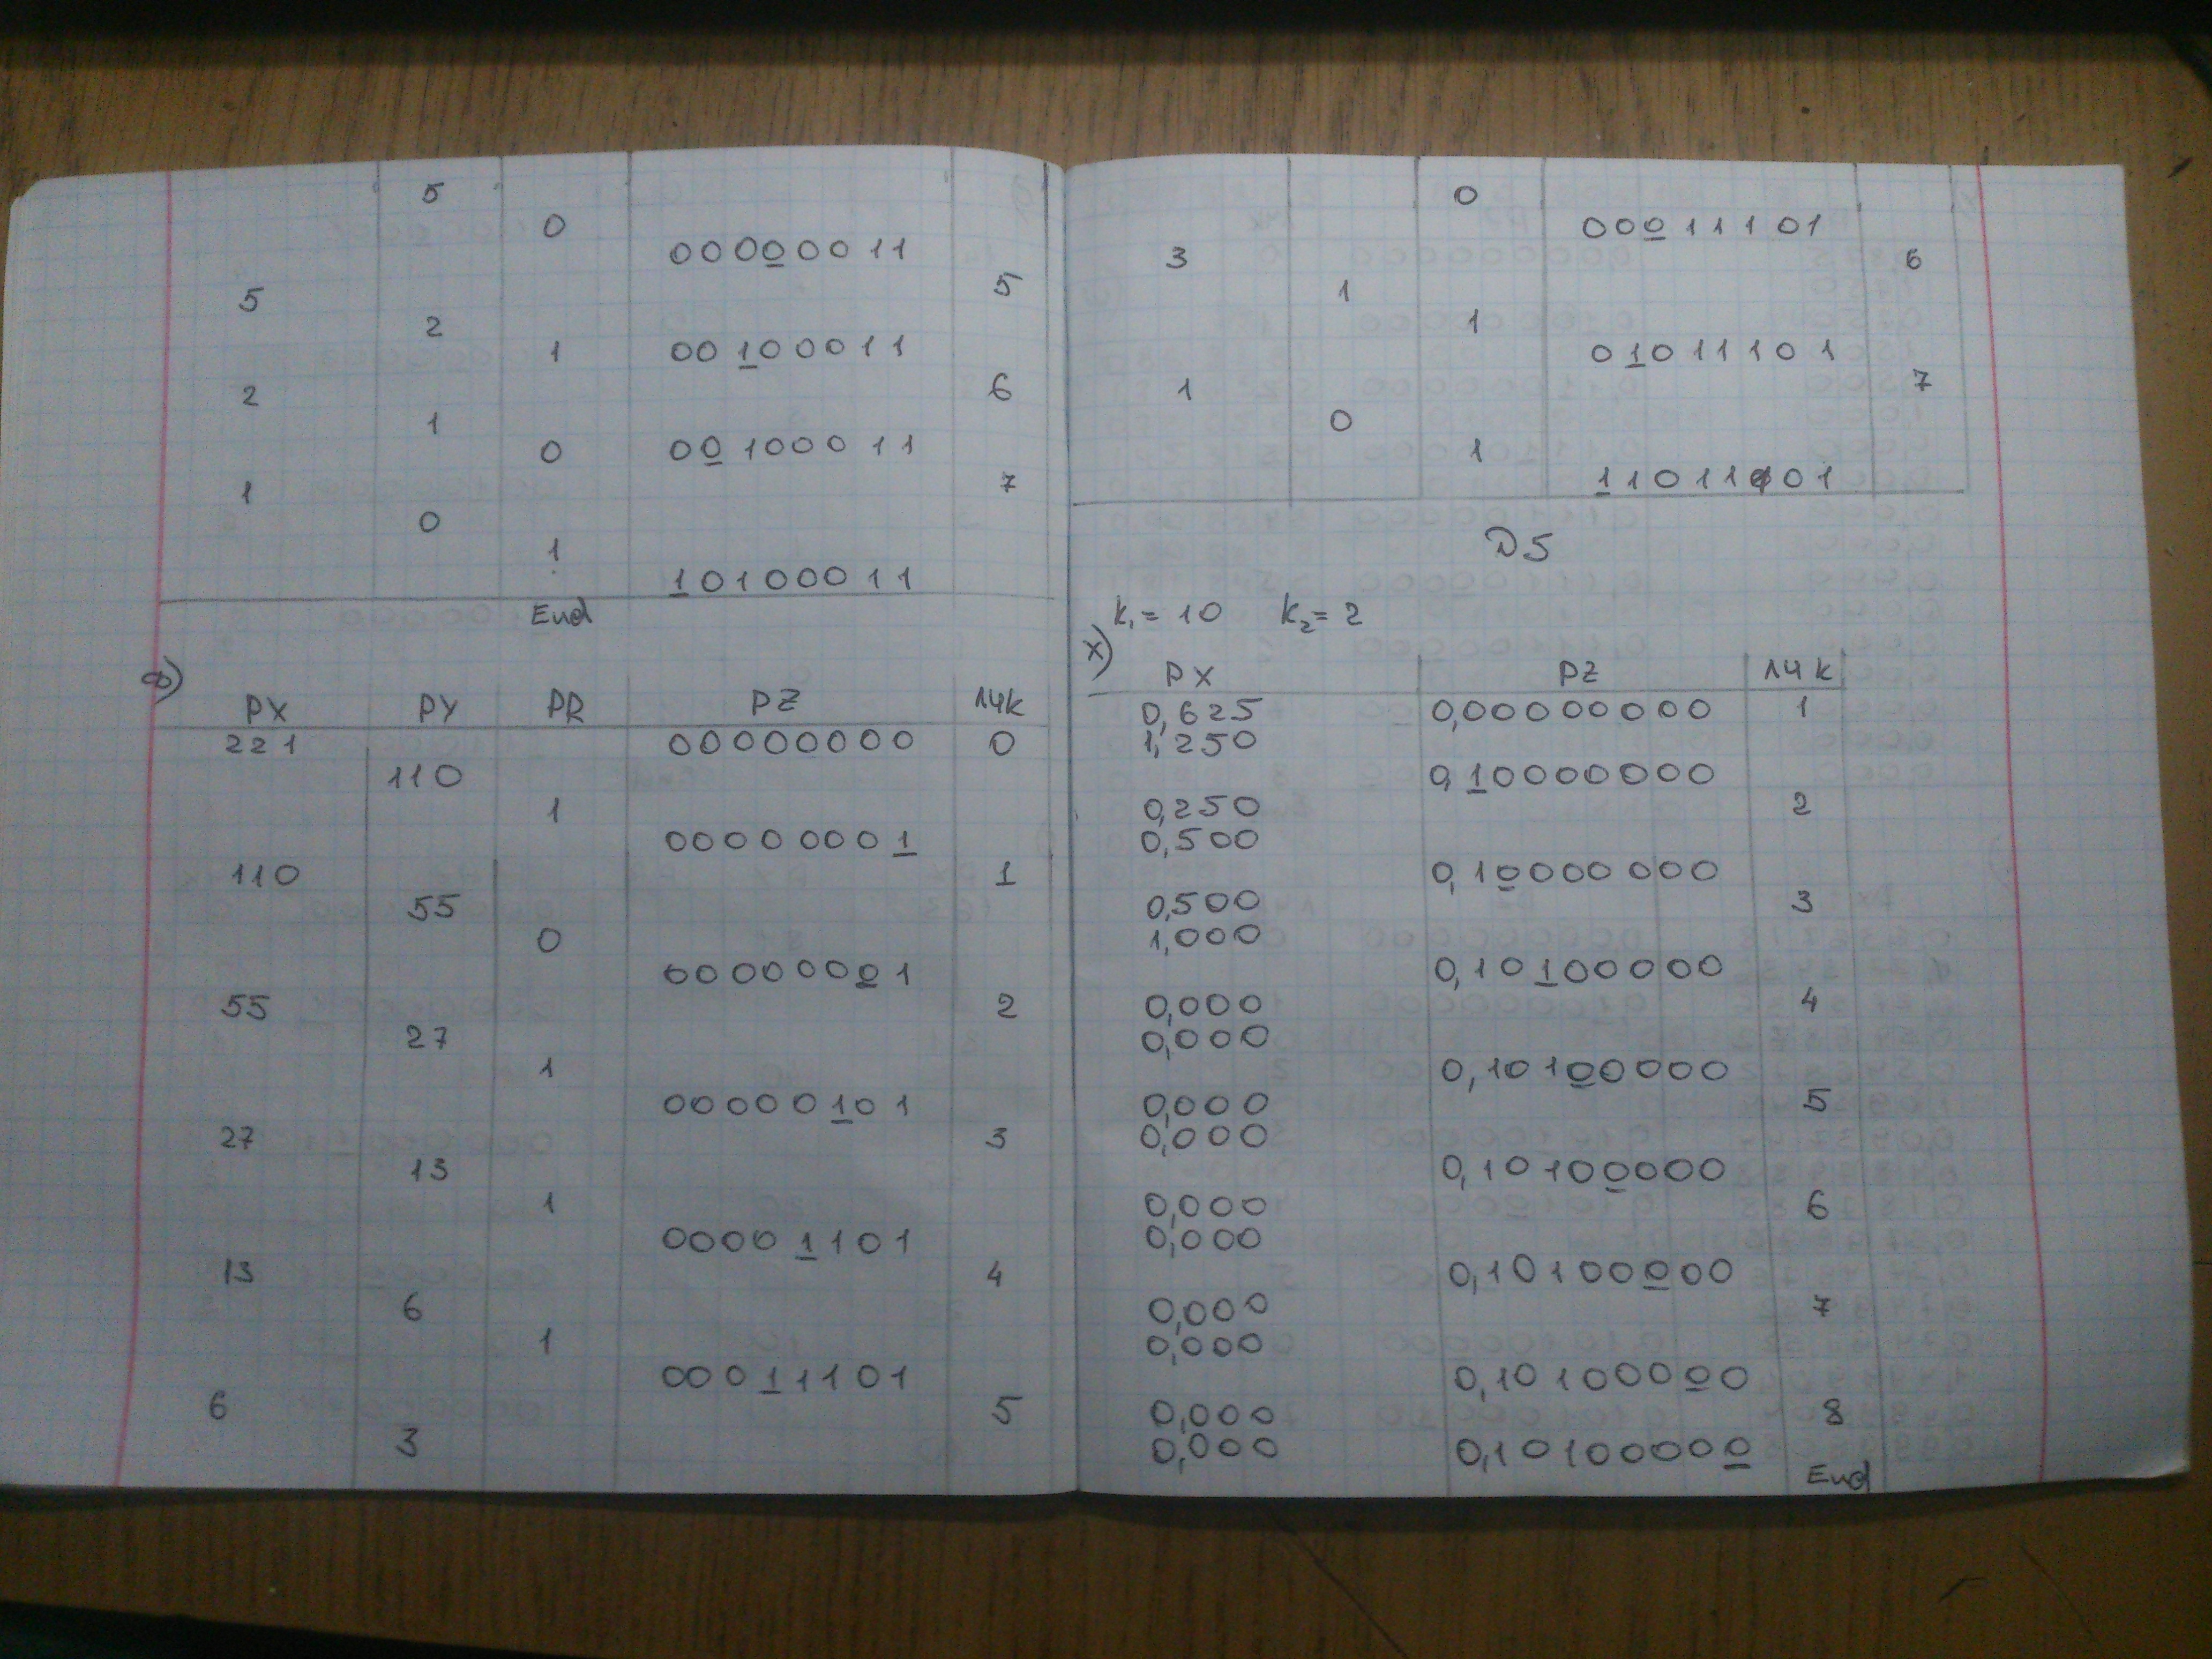 5
0
00000011
5 5
2
1 00100011
2 6
1
0 00100011
1 7
0
1
10100011
End
ф)
PX PY PR PZ ЛЧК
221 00000000 0
110
1
00000001
110 1
55
0
00000001
55 2
27
1
00000101
27 3
13
1
00001101
13 4
6
1
00011101
6 5
3
0
00011101
3 6
1
1
01011101
1 7
0
1
11011101
D5
k₁ = 10 k₂ = 2
x)
PX PZ ЛЧК
0,625 0,00000000 1
1,250
0,10000000
0,250 2
0,500
0,10000000
0,500 3
1,000
0,10100000
0,000 4
0,000
0,10100000
0,000 5
0,000
0,10100000
0,000 6
0,000
0,10100000
0,000 7
0,000
0,10100000
0,000 8
0,000 0,10100000
End